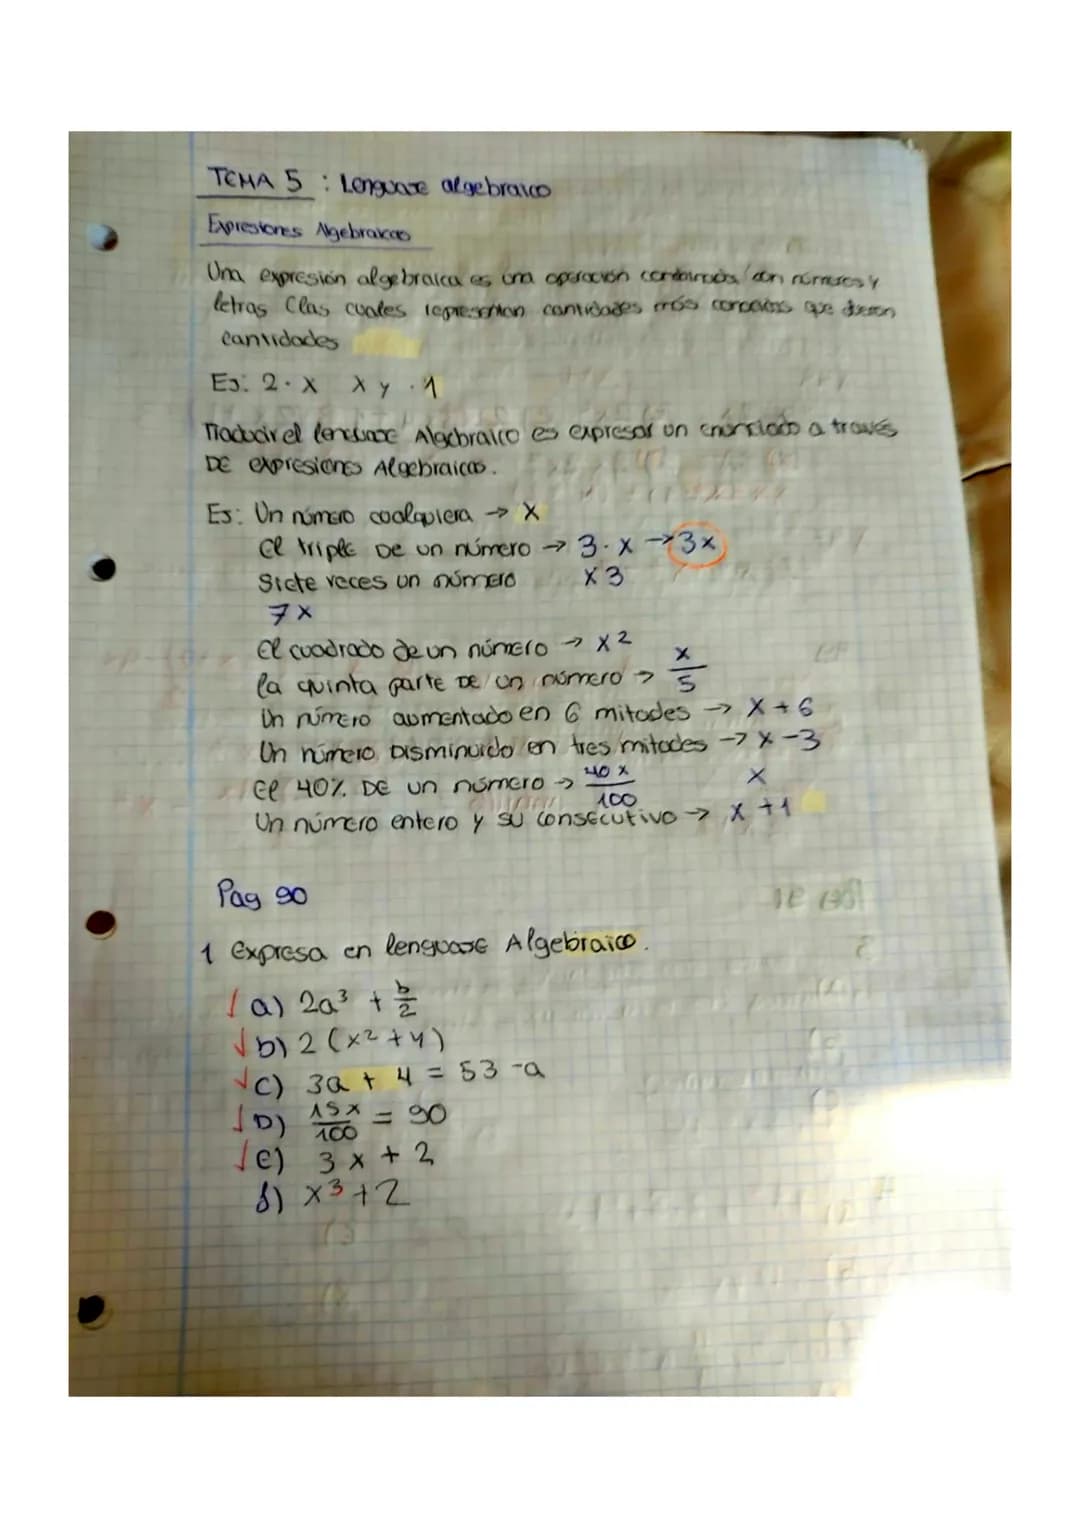 TEMA 5 : Lenguaje algebraico
Expresiones Algebraicas
Una expresión algebraica es una operación combinada con números y
letras (las cuales representan cantidades más que
cantidades
Ej: 2 · x x y · 1
Traducir el lenguaje Algebraico es expresar un enunciado a través
DE expresiones Algebraicas.
Ej: Un número cualquiera → x
El triple DE un número → 3 · x → 3x
Siete veces un número x 3
7x
El cuadrado de un número → x 2
la quinta parte DE un número → x/5
Un número aumentado en 6 mitades → x + 6
Un número Disminuido en tres mitades → x - 3
El 40% DE un número → 40 x/100 x
Un número entero y su consecutivo → x + 1
Pag 90
1 Expresa en lenguaje Algebraico.
a) 2a³ + b/2
b) 2 (x² + y)
c) 3a + 4 = 53 - a
D) 15x/100 = 90
e) 3 x + 2
f) x³ + 2